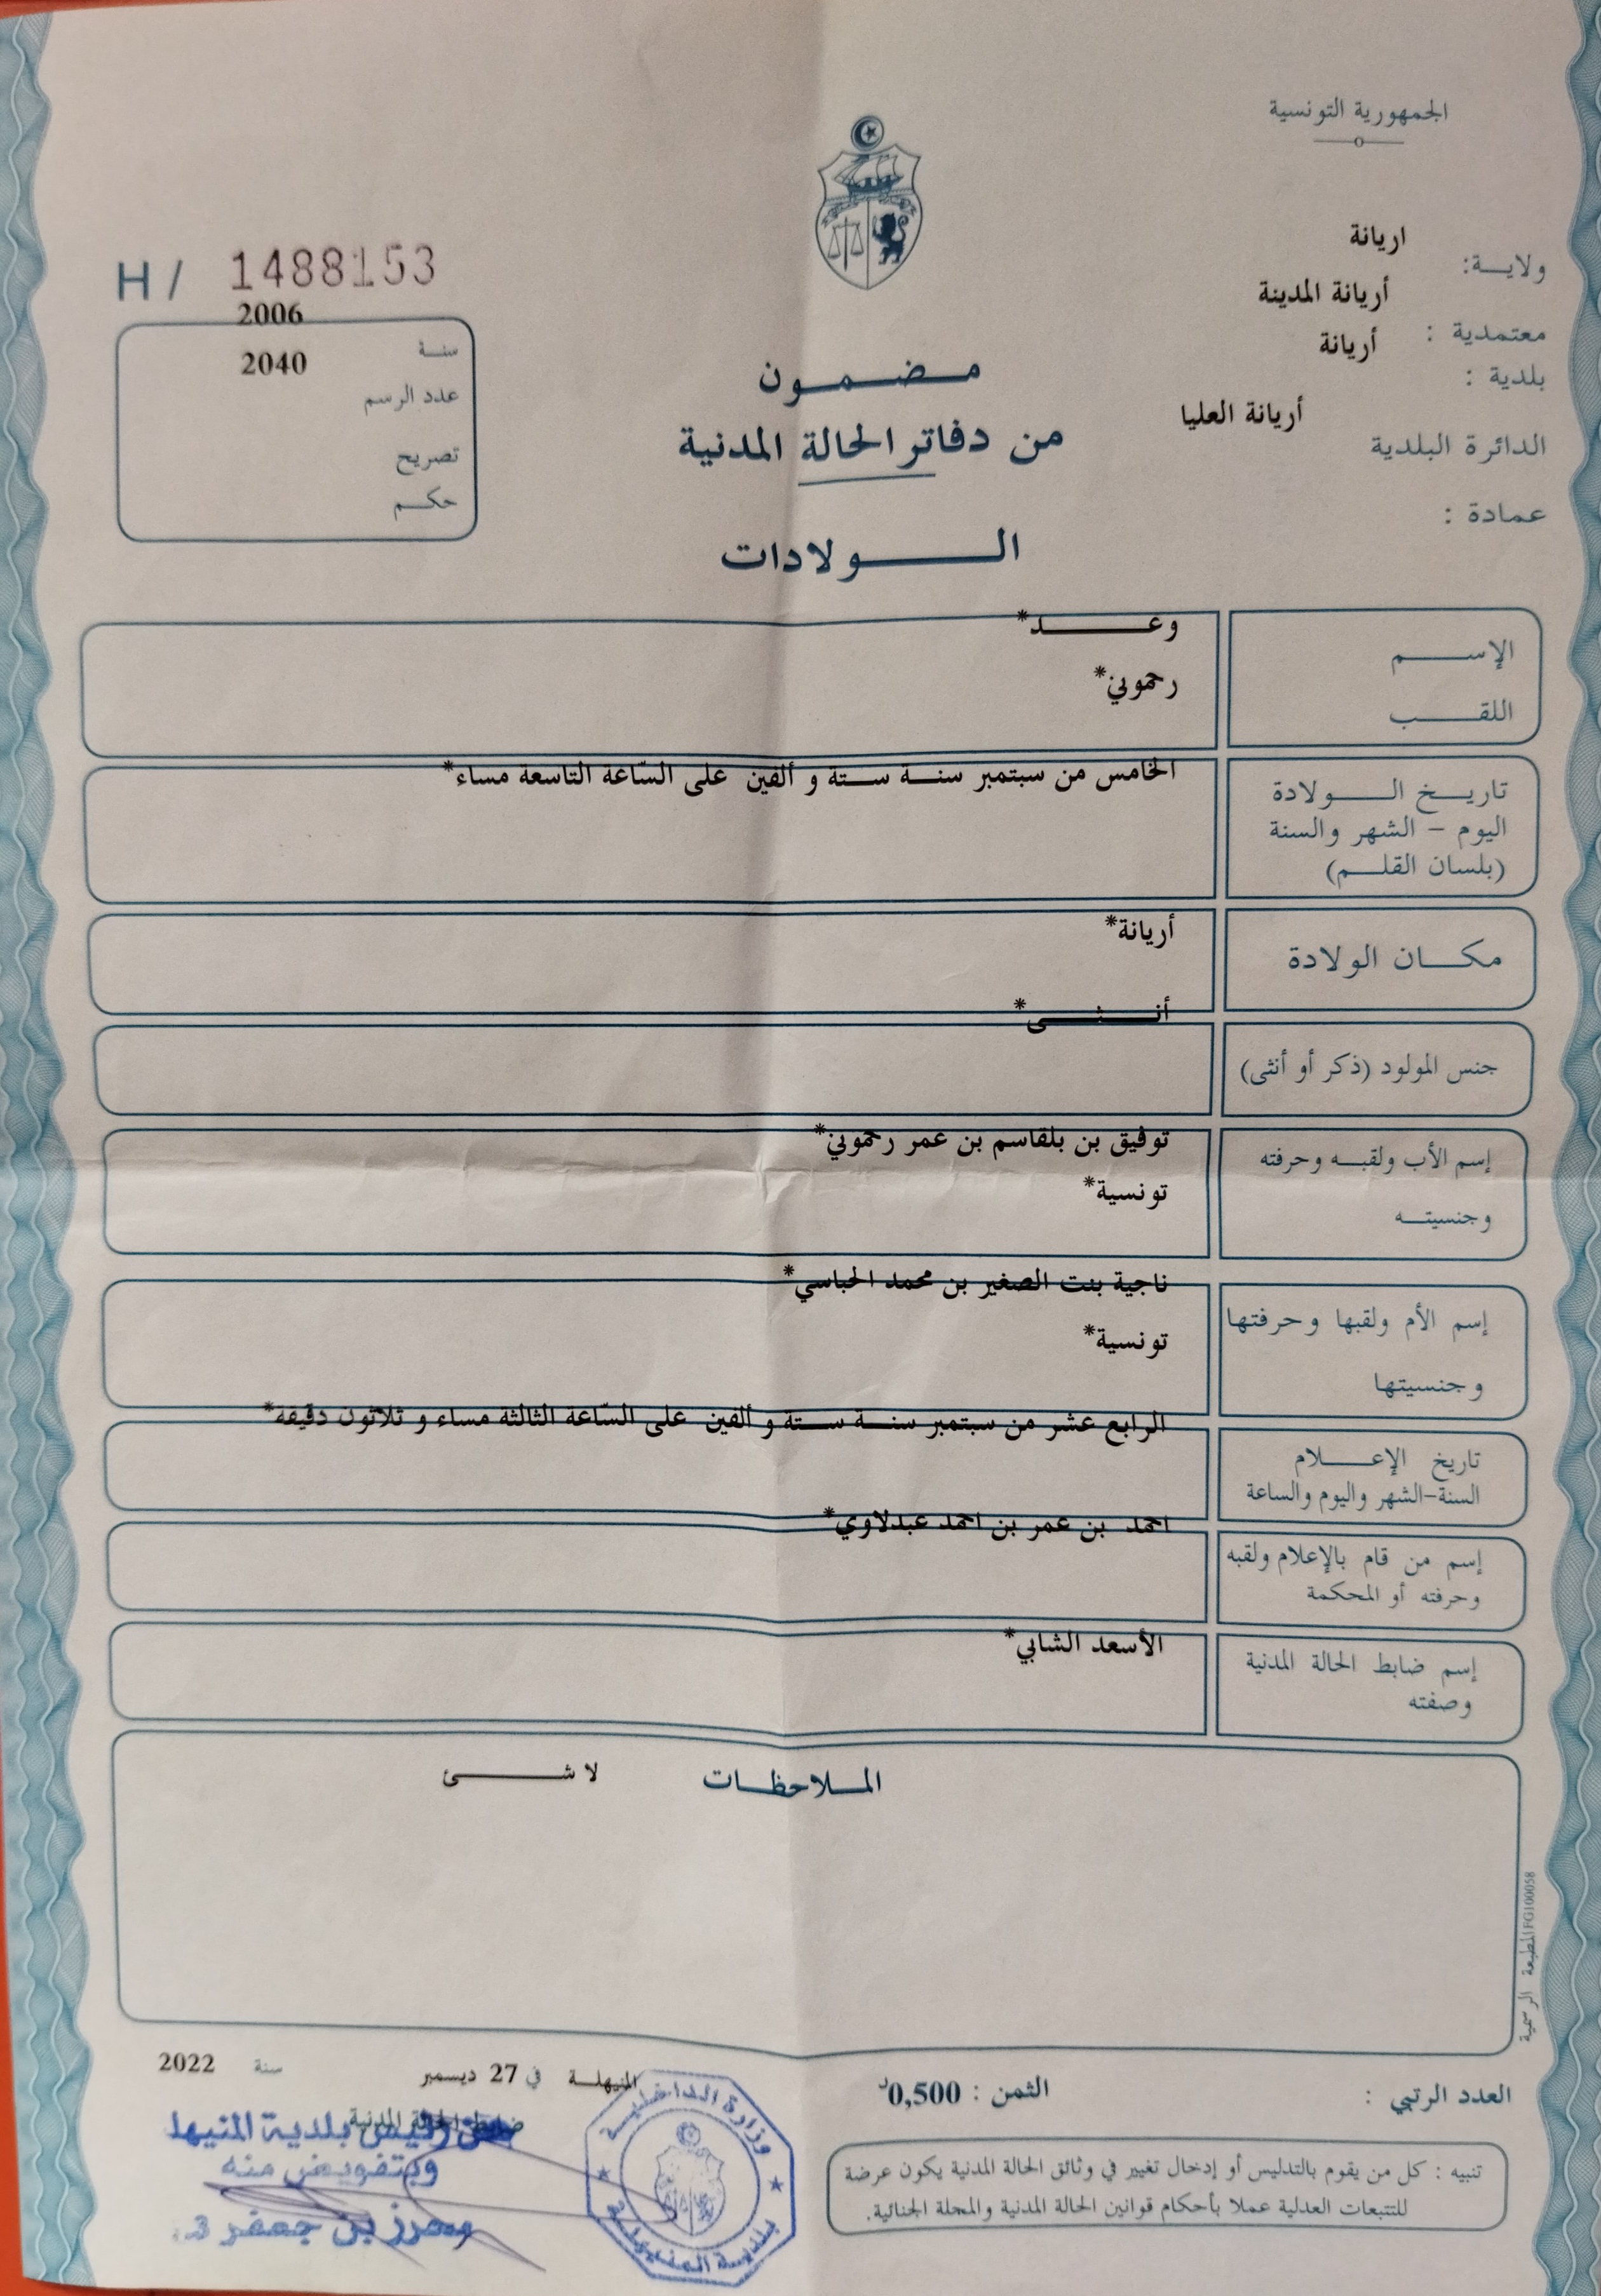 الجمهورية التونسية
ولاية: اريانة
معتمدية : أريانة المدينة
بلدية : أريانة
الدائرة البلدية أريانة العليا
عمادة :
مضمون
من دفاتر الحالة المدنية
الولادات
H / 1488153
سنة 2006
عدد الرسم 2040
تصريح
حكم
الإسم وعد*
اللقب رحموني*
تاريخ الولادة الخامس من سبتمبر سنة ستة و ألفين على السّاعة التاسعة مساء*
اليوم - الشهر والسنة
(بلسان القلم)
مكان الولادة أريانة*
جنس المولود (ذكر أو أنثى) أنثى*
إسم الأب ولقبه وحرفته توفيق بن بلقاسم بن عمر رحموني*
وجنسيته تونسية*
إسم الأم ولقبها وحرفتها ناجية بنت الصغير بن محمد الحباسي*
وجنسيتها تونسية*
تاريخ الإعلام الرابع عشر من سبتمبر سنة ستة و ألفين على السّاعة الثالثة مساء و ثلاثون دقيقة*
السنة-الشهر واليوم والساعة
إسم من قام بالإعلام ولقبه احمد بن عمر بن احمد عبدلاوي*
وحرفته أو المحكمة
إسم ضابط الحالة المدنية الأسعد الشابي*
وصفته
الملاحظات لا شئ
المطبعة الرسمية FG100058
العدد الرتبي :
الثمن : 0,500د
المنيهلة في 27 ديسمبر سنة 2022
ضابط الحالة المدنية
رئيس بلدية المنيهلة
وبتفويض منه
محرز بن جعفر
وزارة الداخلية
بلدية المنيهلة
تنبيه : كل من يقوم بالتدليس أو إدخال تغيير في وثائق الحالة المدنية يكون عرضة
للتتبعات العدلية عملا بأحكام قوانين الحالة المدنية والمجلة الجنائية.